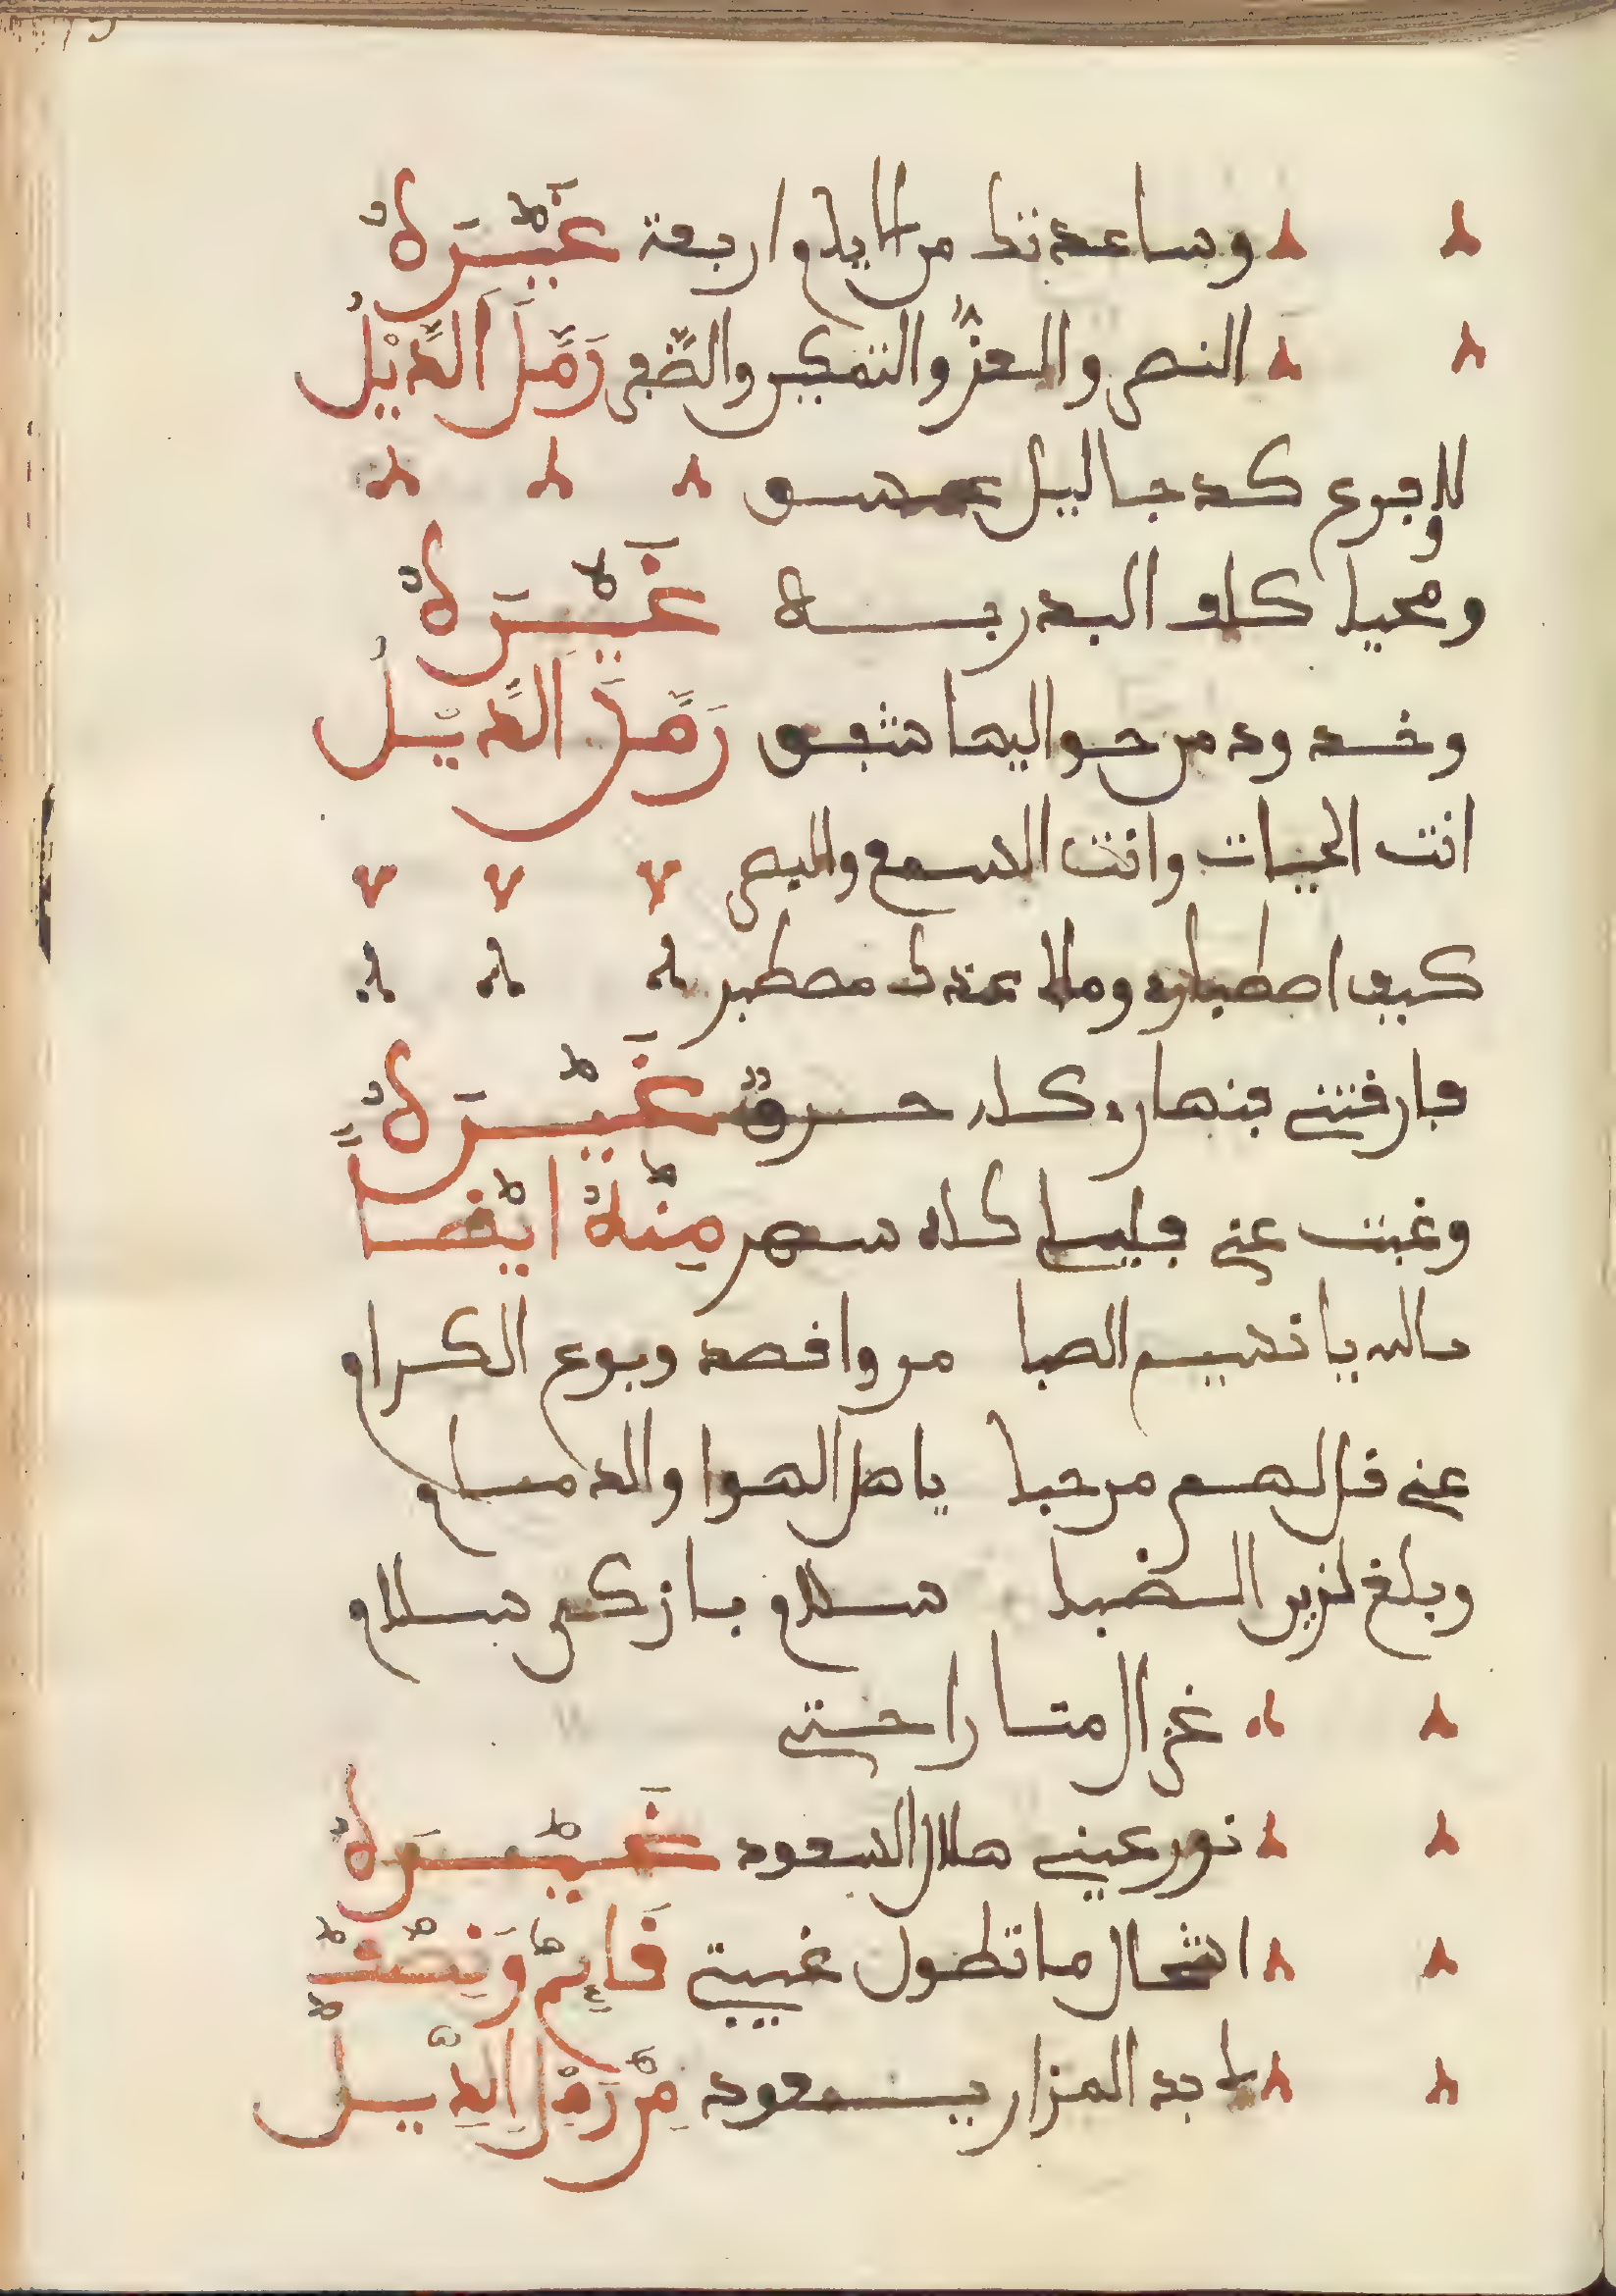 وساعدتك من الايام اربعة غَيْرُهُ
النصر والعزّ والتمكين والضّفر رَمَلَ الذَّيْلُ
وبفرع كد جا ليل عسو
ومحيا كلو البدر به غَيْرُهُ
وخدود من حواليها شفق رَمَلَ الذَّيْلُ
انت الحيات وانت السمع والبصر
كيف اصطباري وما لي عندك مصطبر
فارقتني فنهاري كله حرقٌ غَيْرُهُ
وغبت عني فليلي كله سهر مِنْهُ ايْضاً
بالله يا نسيم الصبا مر واقصد ربوع الكرام
عني قل لهم مرحبا ياهل الهوا والدمام
وبلغ لزين الضبا سلام بازكى سلام
غزال متا راحتي
نور عيني هلال السعود غَيْرُهُ
اشحال ما تطول غيبتي قَايِمْ وَنِصْفْ
لا بد المزار يعود مِنْ رَمْلِ الذِّيلْ